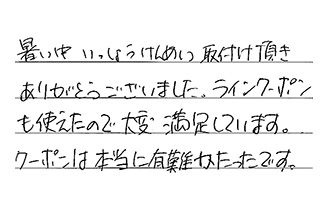 暑い中 いっしょうけんめい 取付け頂き
ありがとうございました。ラインクーポン
も使えたので大変満足しています。
クーポンは本当に有難かったです。